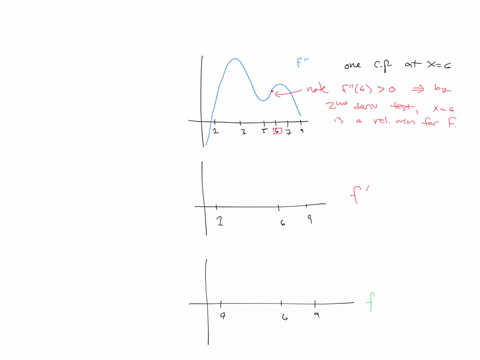 f"
one c.p. at x=6
note f"(6) > 0 ⇒ by
2nd deriv test, x=6
is a rel. min for f.
2 3 5 6 7 9
f'
2 6 9
f
6 9